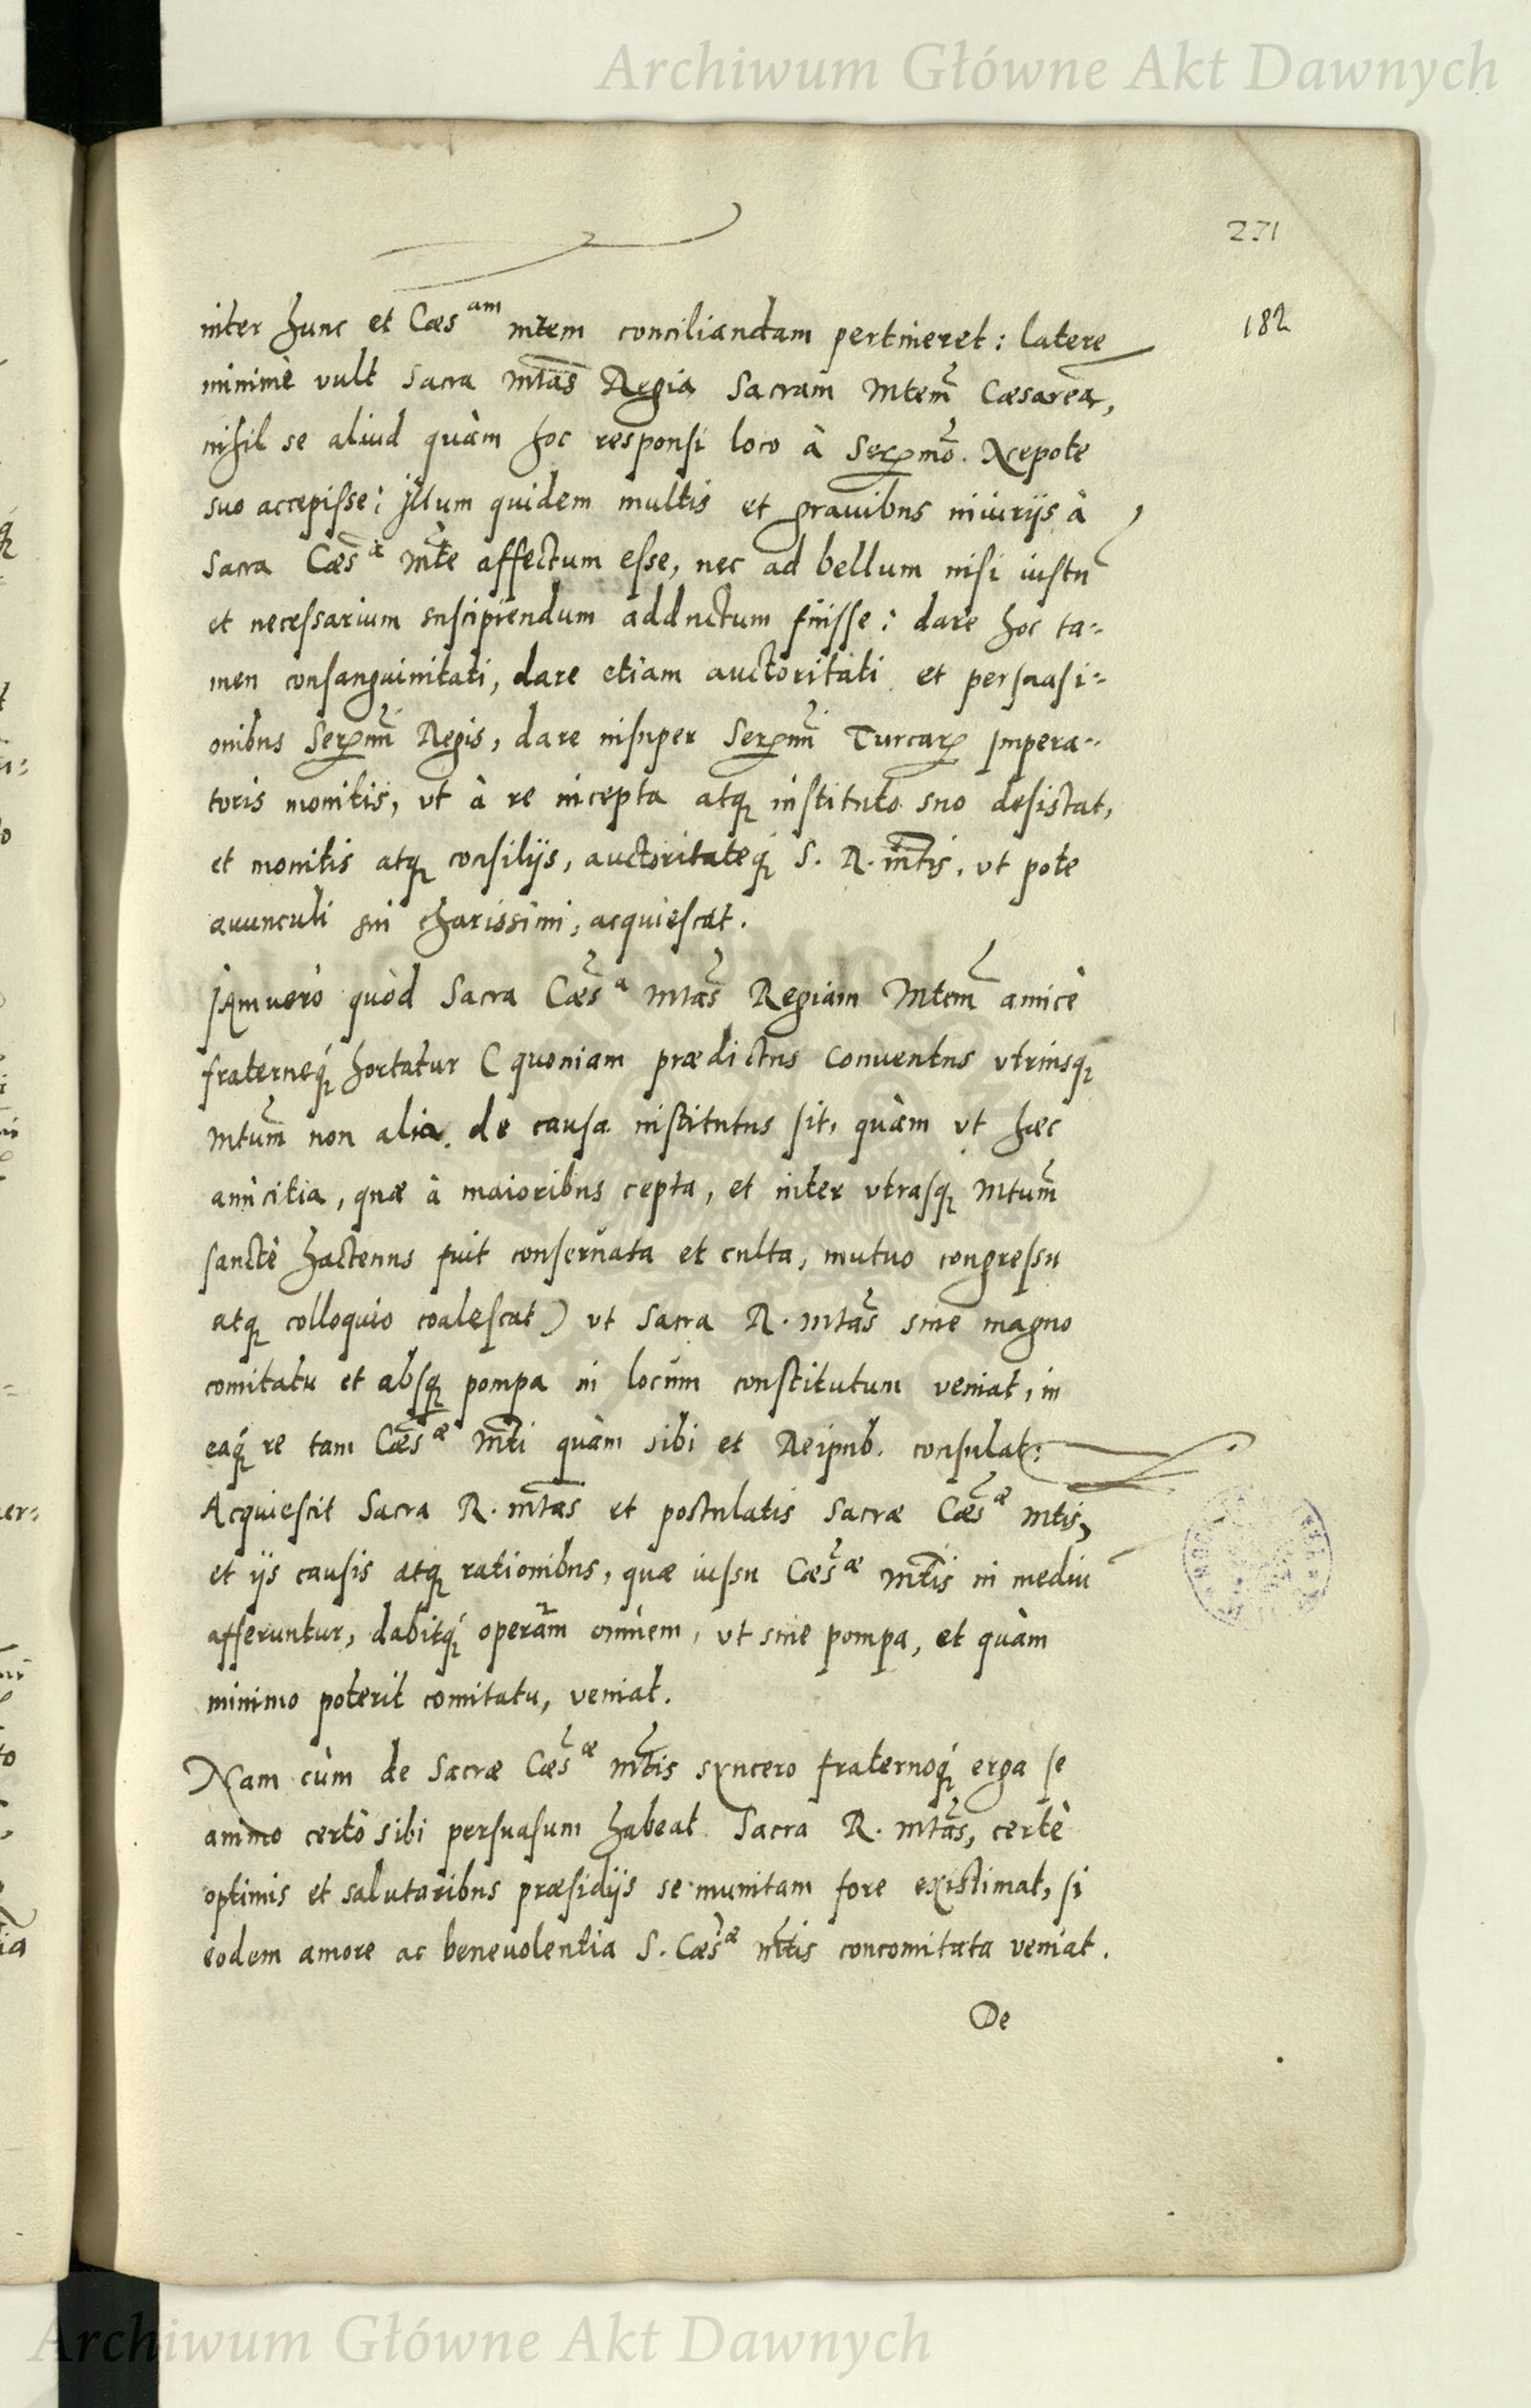 Archiwum Główne Akt Dawnych
231
182
inter hunc et Cæs^am mtem conciliandam pertineret: latere
minimè vult Sacra Mtas Regia Sacram Mtem Cæsareã,
nihil se aliud quàm hoc responsi loco à Sermo. Nepote
suo accepisse: Illum quidem multis et grauibus iniurijs à
Sacra Cæs^a Mte affectum esse, nec ad bellum nisi iustũ
et necessarium suscipiendum adductum fuisse: dare hoc ta=
men consanguinitati, dare etiam auctoritati et persuasi=
onibus Sermi Regis, dare insuper Sermi Turcarꝝ Impera=
toris monitis, vt à re incepta atqꝫ instituto suo desistat,
et monitis atqꝫ consilijs, auctoritateqꝫ S. R. Mtis, vt pote
auunculi sui charissimi, acquiescat.
IAmuerò quòd Sacra Cæs^a Mtas Regiam Mtem amicè
fraterneqꝫ hortatur (quoniam prædictus Conuentus vtriusqꝫ
Mtum non alia de causa institutus sit, quàm vt hæc
amicitia, quæ à maioribus cepta, et inter vtrasqꝫ Mtum
sanctè hactenus fuit conseruata et culta, mutuo congressu
atqꝫ colloquio coalescat) vt Sacra R. Mtas sine magno
comitatu et absqꝫ pompa in locum constitutum veniat, in
eaqꝫ re tam Cæs^æ Mti quàm sibi et Reipub. consulat:
Acquiescit Sacra R. Mtas et postulatis Sacræ Cæs^æ Mtis,
et ijs causis atqꝫ rationibus, quæ iussu Cæs^æ Mtis in mediũ
afferuntur, dabitqꝫ operam omnem, vt sine pompa, et quàm
minimo poterit comitatu, veniat.
Nam cùm de Sacræ Cæs^æ Mtis syncero fraternoqꝫ erga se
animo certò sibi persuasum habeat Sacra R. Mtas, certè
optimis et salutaribus præsidijs se munitam fore existimat, si
eodem amore ac beneuolentia S. Cæs^æ Mtis concomitata veniat.
De
Archiwum Główne Akt Dawnych